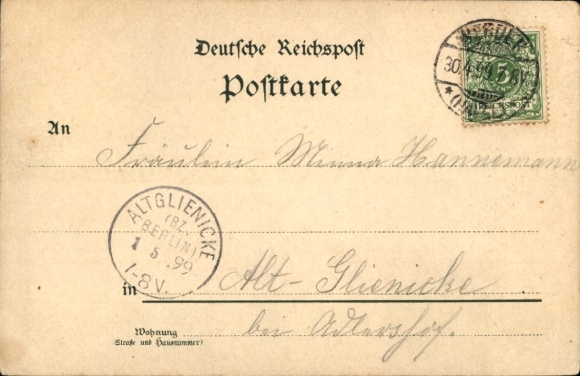 Deutsche Reichspost
Postkarte
30.4.99
5
An
Fräulein Minna Hannemann
ALTGLIENICKE
(BZ.
BERLIN)
1 5 .99
1-8V.
in Alt-Glienicke
bei Adlershof.
Wohnung
(Straße und Hausnummer)